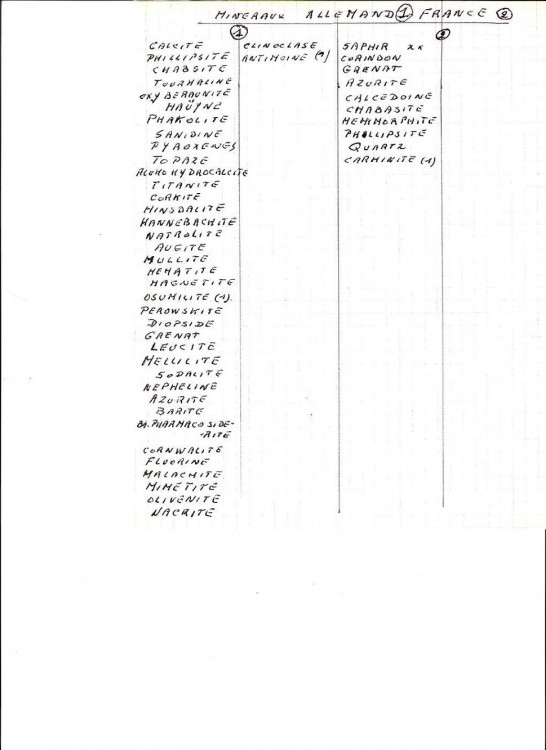 MINERAUX ALLEMAND 1 FRANCE 2
1
CALCITE
PHILLIPSITE
CHABSITE
TOURMALINE
OXYBERAUNITE
HAÜYNE
PHAKOLITE
SANIDINE
PYROXENES
TOPAZE
ALUMOHYDROCALCITE
TITANITE
CORKITE
HINSDALITE
HANNEBACHITE
NATROLITE
AUGITE
MULLITE
HEMATITE
MAGNETITE
OSUMILITE (1).
PEROWSKITE
DIOPSIDE
GRENAT
LEUCITE
MELLILITE
SODALITE
NEPHELINE
AZURITE
BARITE
BA. PHARMACOSIDE-
-RITE
CORNWALITE
FLUORINE
MALACHITE
MIMETITE
OLIVENITE
NACRITE
CLINOCLASE
ANTIMOINE (?)
2
SAPHIR xx
CORINDON
GRENAT
AZURITE
CALCEDOINE
CHABASITE
HEMIMORPHITE
PHILLIPSITE
QUARTZ
CARMINITE (1)